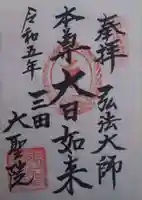 奉拝
弘法大師
本尊大日如来
三田
大聖院
令和五年